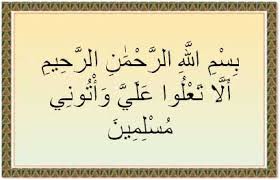 بِسْمِ اللَّهِ الرَّحْمَٰنِ الرَّحِيمِ
أَلَّا تَعْلُوا عَلَيَّ وَأْتُونِي
مُسْلِمِينَ